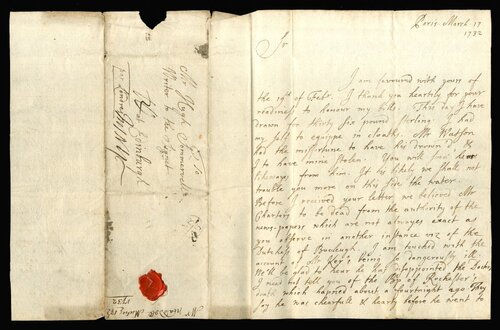 Paris March 17
1732
Sr
I am favoured with yours of
the 19th of Febr. I thank you heartily for your
readiness to honour my bills. This day I have
drawn for thirty six pound sterling. I had
my self to equippe in cloaths, Mr Watson
had the misfortune to have his drown'd &
I to have mine stolen. You will hear
likeways from him. It is likely we shall not
trouble you more on this side the water.
Before I received your letter, we believed Mr
Charters to be dead from the authority of the
news-papers which are not always exact as
you observe in another instance viz of the
Dutchess of Buccleugh. I am touched with the
account of Mr Kay's being so dangerously ill.
We'll be glad to hear he has disappointed the Doctors
I need not tell you of the Bp of Rochester's
death which happned about a fourtnight ago. They
say he was chearfull & hearty before he went to
Mr Hugh Sommervile
Writer to the Signet
Edinburgh
1732